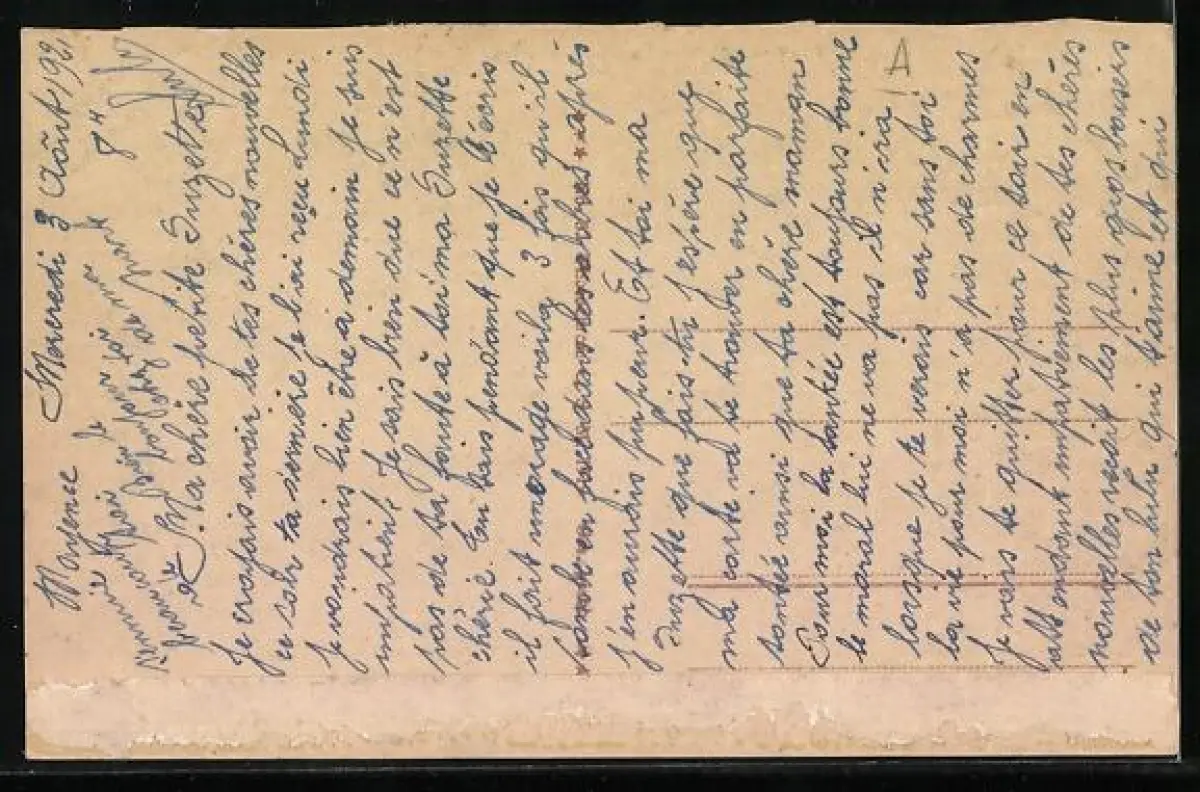 Mayence Mercredi 3 Août 1921
8 H
Ma chère petite Suzette
Je croyais avoir de tes chères nouvelles
ce soir ta dernière je l'ai reçu lundi
Je voudrais bien être à demain je suis
impatient. Je sais bien que ce n'est
pas de ta faute à toi ma Suzette
chérie. En pendant que je t'écris
il fait un orage voila 3 fois qu'il
tombe en les arbres après
j'en aurais peur. Et toi ma
Suzette que fais-tu j'espère que
ma carte va te trouver en parfaite
santée ainsi que ta chère maman
Pour moi la santée est toujours bonne
le moral lui ne va pas il n'ira
lorsque je te verais car sans toi
la vie pour moi n'a pas de charmes
Je vais te quitter pour ce soir en
attendant impatiement de tes chères
nouvelles reçoit les plus gros baisers
de ton Lulu qui t'aime et qui